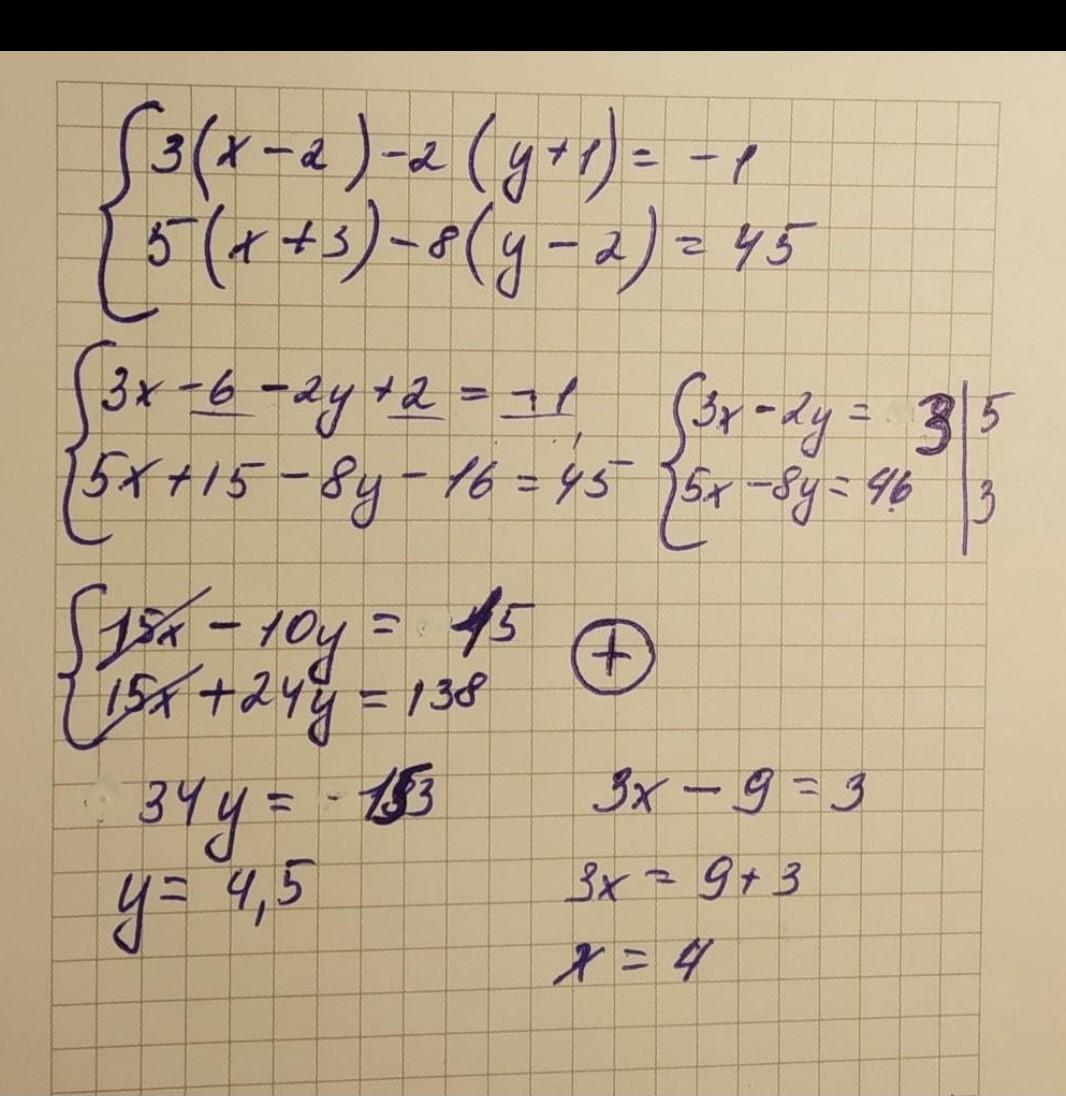 3(x-2)-2(y+1)=-1
5(x+3)-8(y-2)=45
3x-6-2y+2=-1
5x+15-8y-16=45
3x-2y=3|5
5x-8y=46|3
15x-10y=15
15x+24y=138
+
34y=-153
y=4,5
3x-9=3
3x=9+3
x=4